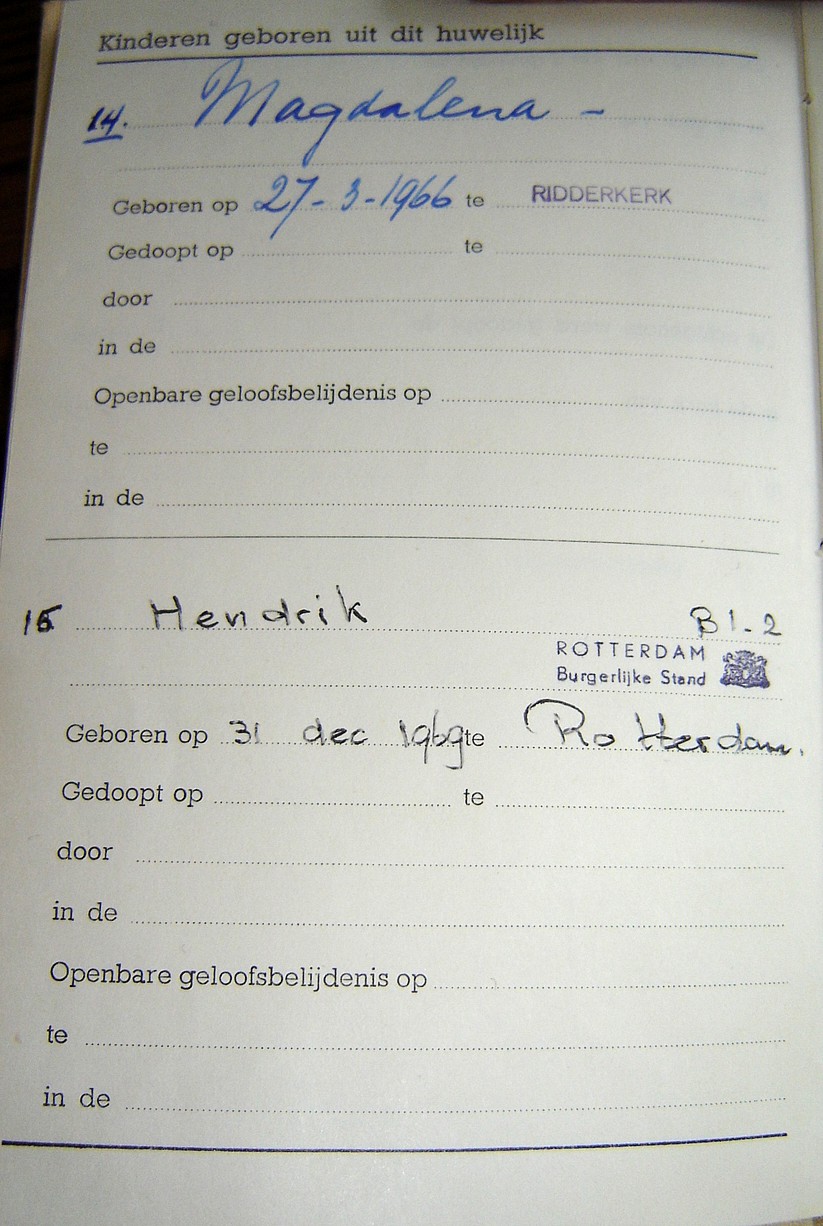 Kinderen geboren uit dit huwelijk
14. Magdalena -
Geboren op 27-3-1966 te RIDDERKERK
Gedoopt op te
door
in de
Openbare geloofsbelijdenis op
te
in de
15 Hendrik B1-2
ROTTERDAM
Burgerlijke Stand
Geboren op 31 dec 1969 te Rotterdam.
Gedoopt op te
door
in de
Openbare geloofsbelijdenis op
te
in de